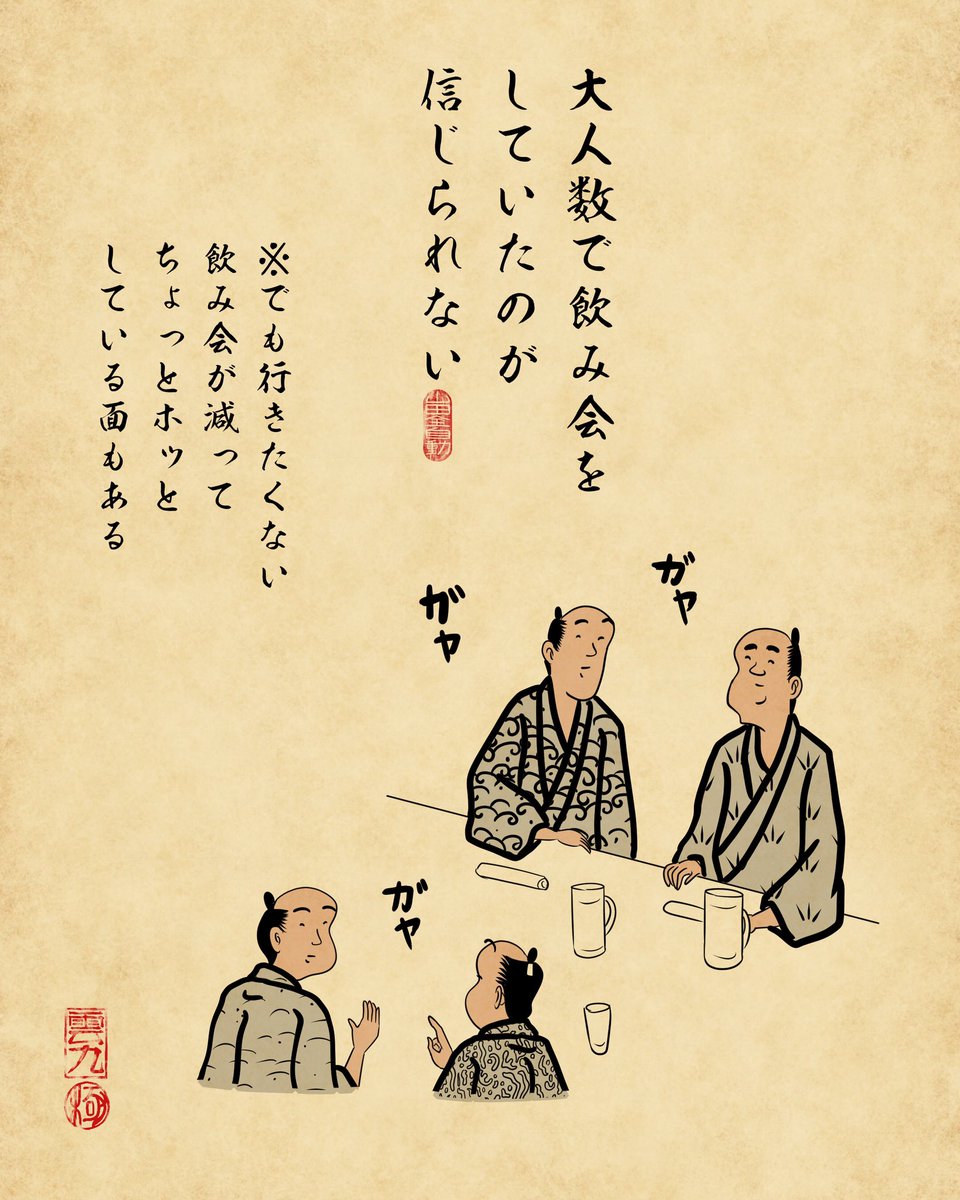 大人数で飲み会を
していたのが
信じられない
※でも行きたくない
飲み会が減って
ちょっとホッと
している面もある
ガヤ
ガヤ
ガヤ